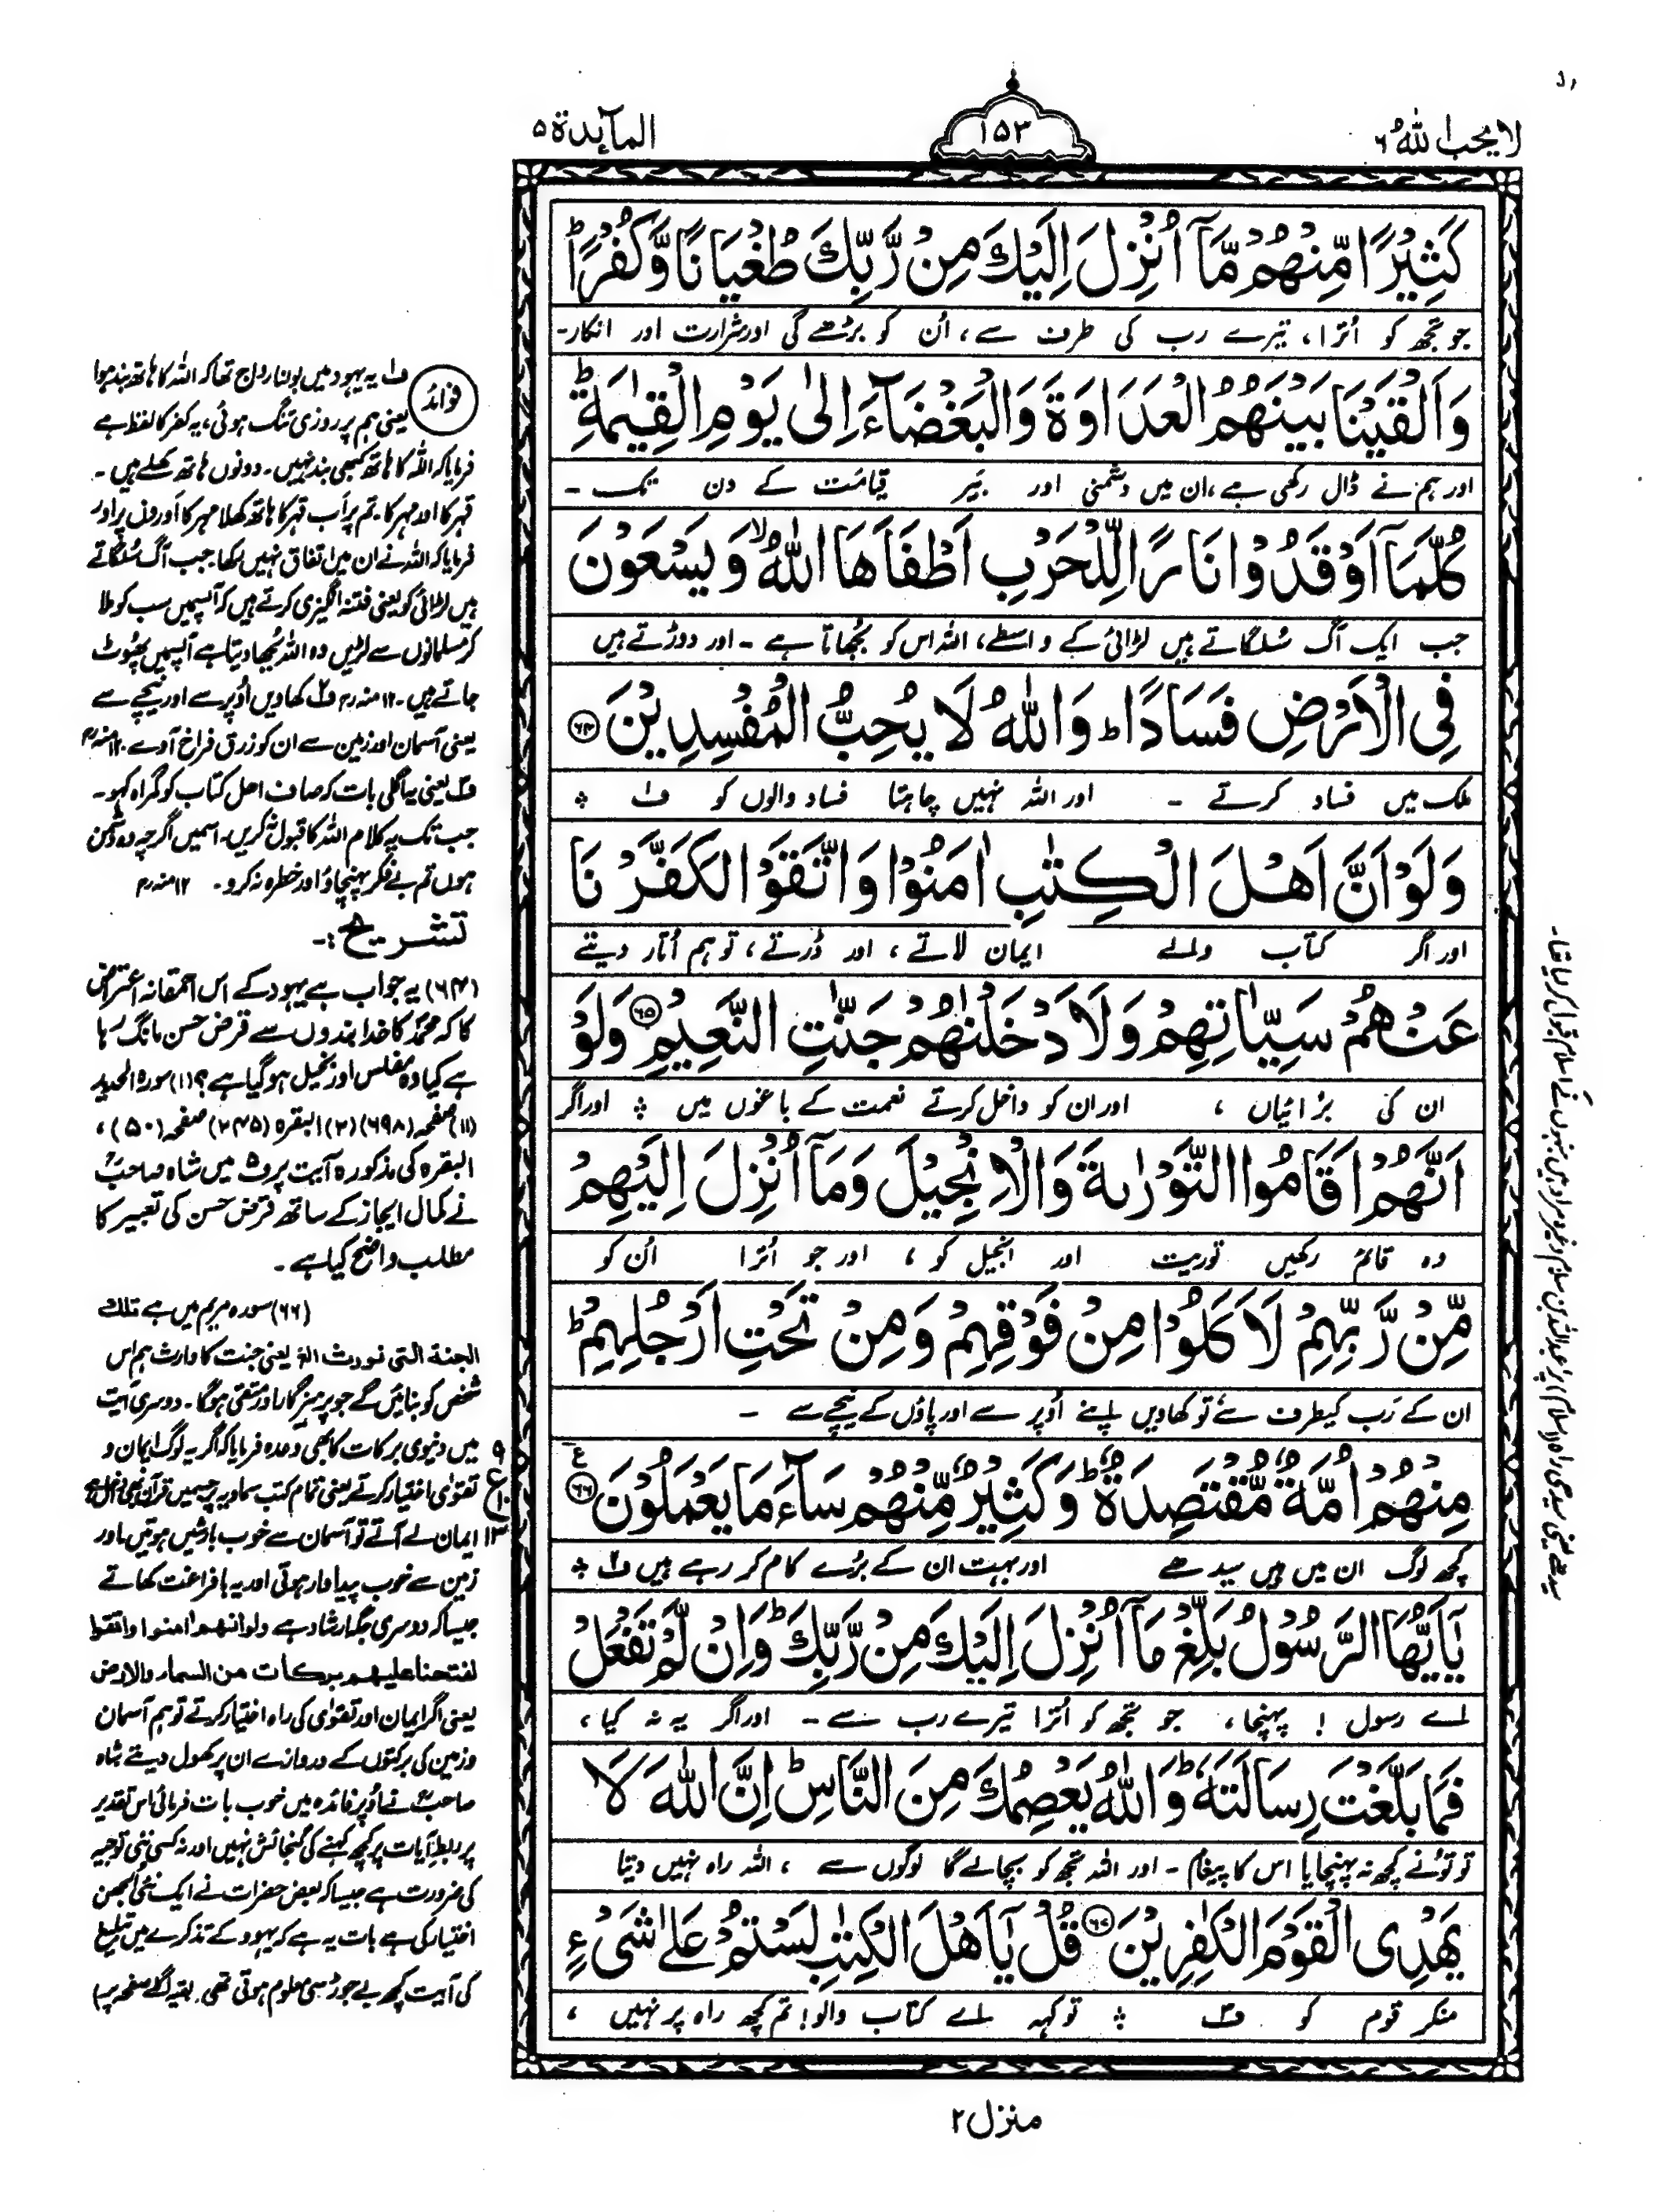 لا يحب الله ٦
١٥٣
المآئدة ٥
كَثِيْرًا مِّنْهُمْ مَّآ اُنْزِلَ اِلَيْكَ مِنْ رَّبِّكَ طُغْيَانًا وَّكُفْرًا ؕ
جو تجھ کو اُترا، تیرے رب کی طرف سے، اُن کو بڑھے گی اور شرارت اور انکار۔
وَاَلْقَيْنَا بَيْنَهُمُ الْعَدَاوَةَ وَالْبَغْضَآءَ اِلٰى يَوْمِ الْقِيٰمَةِ ؕ
اور ہم نے ڈال رکھی ہے، ان میں دشمنی اور بَیر قیامت کے دن تک ۔
كُلَّمَآ اَوْقَدُوْا نَارًا لِّلْحَرْبِ اَطْفَاَهَا اللّٰهُ ۙ وَيَسْعَوْنَ
جب ایک آگ سُلگاتے ہیں لڑائی کے واسطے، اللہ اس کو بُجھاتا ہے ۔ اور دوڑتے ہیں
فِى الْاَرْضِ فَسَادًا ؕ وَاللّٰهُ لَا يُحِبُّ الْمُفْسِدِيْنَ ۝۶۴
ملک میں فساد کرتے ۔ اور اللہ نہیں چاہتا فساد والوں کو ف۱
وَلَوْ اَنَّ اَهْلَ الْكِتٰبِ اٰمَنُوْا وَاتَّقَوْا لَكَفَّرْنَا
اور اگر کتاب والے ایمان لاتے، اور ڈرتے، تو ہم اُتار دیتے
عَنْهُمْ سَيِّاٰتِهِمْ وَلَاَدْخَلْنٰهُمْ جَنّٰتِ النَّعِيْمِ ۝۶۵ وَلَوْ
ان کی بُرائیاں ، اور ان کو داخل کرتے نعمت کے باغوں میں اور اگر
اَنَّهُمْ اَقَامُوا التَّوْرٰىةَ وَالْاِنْجِيْلَ وَمَآ اُنْزِلَ اِلَيْهِمْ
وہ قائم رکھیں توریت اور انجیل کو ، اور جو اُترا اُن کو
مِّنْ رَّبِّهِمْ لَاَكَلُوْا مِنْ فَوْقِهِمْ وَمِنْ تَحْتِ اَرْجُلِهِمْ ؕ
ان کے رَب کیطرف سے تو کھاویں اپنے اُوپر سے اور پاؤں کے نیچے سے ۔
مِنْهُمْ اُمَّةٌ مُّقْتَصِدَةٌ ؕ وَكَثِيْرٌ مِّنْهُمْ سَآءَ مَا يَعْمَلُوْنَ ۝۶۶
کچھ لوگ ان میں ہیں سیدھے اور بہت ان کے بُرے کام کر رہے ہیں ف۲
يٰٓاَيُّهَا الرَّسُوْلُ بَلِّغْ مَآ اُنْزِلَ اِلَيْكَ مِنْ رَّبِّكَ ؕ وَاِنْ لَّمْ تَفْعَلْ
اے رسول ! پہنچا، جو تجھ کو اُترا تیرے رب سے ۔ اور اگر یہ نہ کیا،
فَمَا بَلَّغْتَ رِسَالَتَهٗ ؕ وَاللّٰهُ يَعْصِمُكَ مِنَ النَّاسِ ؕ اِنَّ اللّٰهَ لَا
تو تُونے کچھ نہ پہنچایا اس کا پیغام ۔ اور اللہ تجھ کو بچالے گا لوگوں سے ، اللہ راہ نہیں دیتا
يَهْدِى الْقَوْمَ الْكٰفِرِيْنَ ۝۶۷ قُلْ يٰٓاَهْلَ الْكِتٰبِ لَسْتُمْ عَلٰى شَىْءٍ
منکر قوم کو ف۳ تو کہہ اے کتاب والو! تم کچھ راہ پر نہیں ،
منزل ٢
فوائد
ف۱ یہ یہود میں بولنا رواج تھا کہ اللہ کا ہاتھ بند ہوا
یعنی ہم پر روزی تنگ ہوئی، یہ کفر کا لفظ ہے
فرمایا کہ اللہ کا ہاتھ کبھی بند نہیں۔ دونوں ہاتھ کھلے ہیں ۔
قہر کا اور مہر کا۔ تم پر اَب قہر کا ہاتھ کھلا مہر کا اَوروں پر اور
فرمایا کہ اللہ نے ان میں اتفاق نہیں رکھا۔ جب آگ سُلگاتے
ہیں لڑائی کو یعنی فتنہ انگیزی کرتے ہیں کہ آپسمیں سب کو ملا
کر مسلمانوں سے لڑیں وہ اللہ بُجھا دیتا ہے آپسمیں پھوٹ
جاتے ہیں ۔ ۱۲ منہ رح ف۲ کھاویں اُوپر سے اور نیچے سے
یعنی آسمان اور زمین سے ان کو رزق فراخ آوے ۔ ۱۲ منہ رح
ف۳ یعنی یہ اگلی بات کہ صاف اہل کتاب کو گمراہ کہو۔
جب تک یہ کلام اللہ کا قبول نہ کریں۔ اسمیں اگرچہ وہ دُشمن
ہوں تم بے فکر پہنچاؤ اور خطرہ نہ کرو ۔ ۱۲ منہ رح
تشریح :۔
(۶۴) یہ جواب ہے یہود کے اس احمقانہ اعتراض
کا کہ محمدؐ کا خدا بندوں سے قرض حسن مانگ رہا
ہے کیا وہ مفلس اور بخیل ہو گیا ہے؟ (۱) سورہ الحدید
(۱۱) صفحہ (۶۹۸) (۲) البقرہ (۲۴۵) صفحہ (۵۰) ،
البقرہ کی مذکورہ آیت پر ف میں شاہ صاحبؒ
نے کمال ایجاز کے ساتھ قرض حسن کی تعبیر کا
مطلب واضح کیا ہے ۔
(۶۶) سورہ مریم میں ہے تلك
الجنة التى نورث الخ یعنی جنت کا وارث ہم اس
شخص کو بنائیں گے جو پرہیزگار اور متقی ہوگا۔ دوسری آیت
میں دنیوی برکات کا بھی وعدہ فرمایا کہ اگر یہ لوگ ایمان و
تقوٰی اختیار کرتے یعنی تمام کتب سماویہ پر جسمیں قرآن بھی داخل ہے
ایمان لے آتے تو آسمان سے خوب بارشیں ہوتیں اور
زمین سے خوب پیداوار ہوتی اور یہ با فراغت کھاتے
جیسا کہ دوسری جگہ ارشاد ہے ولو انهم امنوا واتقوا
لفتحنا عليهم بركات من السماء والارض
یعنی اگر ایمان اور تقوٰی کی راہ اختیار کرتے تو ہم آسمان
و زمین کی برکتوں کے دروازے ان پر کھول دیتے شاہ
صاحبؒ نے اُوپر فائدہ میں خوب بات فرمائی اس تقدیر
پر ربط آیات پر کچھ کہنے کی گنجائش نہیں اور نہ کسی نئی توجیہ
کی ضرورت ہے جیسا کہ بعض حضرات نے ایک نئی اُلجھن
اختیار کی ہے بات یہ ہے کہ یہود کے تذکرے میں تبلیغ
کی آیت کچھ بے جوڑ سی معلوم ہوتی تھی۔ بقیہ اگلے صفحہ پر)
۹
ع
۱۰
۱۳